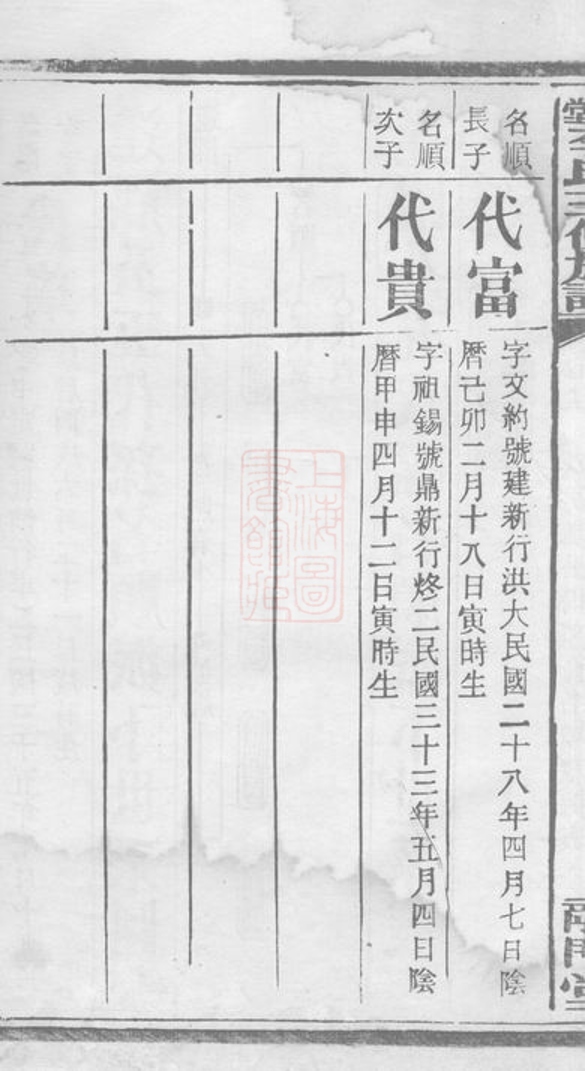 名順
長子
代富
字文約號建新行洪大民國二十八年四月七日陰
曆己卯二月十八日寅時生
名順
次子
代貴
字祖錫號鼎新行烿二民國三十三年五月四日陰
曆甲申四月十二日寅時生
上海圖
書館藏